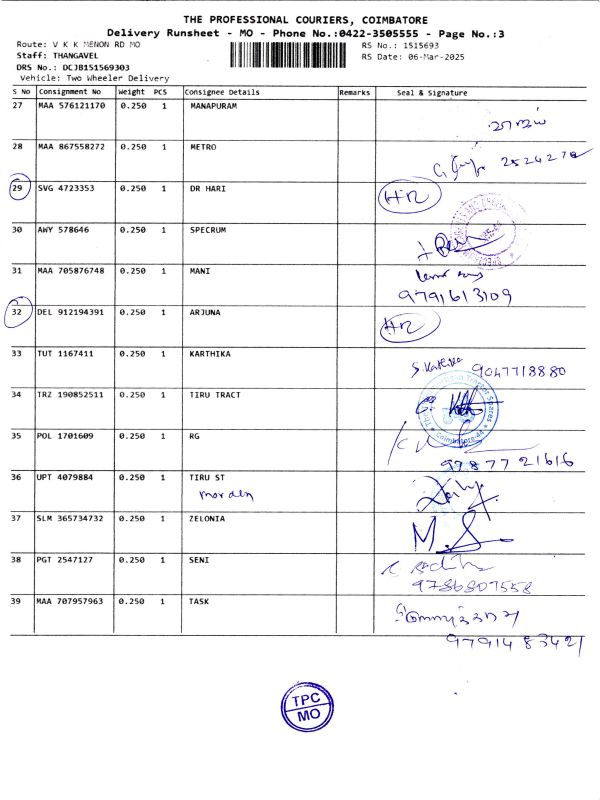 THE PROFESSIONAL COURIERS, COIMBATORE
Delivery Runsheet - MO - Phone No.:0422-3505555 - Page No.:3
Route: V K K MENON RD MO
RS No.: 1515693
Staff: THANGAVEL
RS Date: 06-Mar-2025
DRS No.: DCJB151569303
Vehicle: Two Wheeler Delivery
S No Consignment No Weight PCS Consignee Details Remarks Seal & Signature
27 MAA 576121170 0.250 1 MANAPURAM
28 MAA 867558272 0.250 1 METRO
29 SVG 4723353 0.250 1 DR HARI HR
30 AWY 578646 0.250 1 SPECRUM
31 MAA 705876748 0.250 1 MANI
9791613109
32 DEL 912194391 0.250 1 ARJUNA HR
33 TUT 1167411 0.250 1 KARTHIKA S. 9047718880
34 TRZ 190852511 0.250 1 TIRU TRACT
Tractor Spares
Coimbatore-44
35 POL 1701609 0.250 1 RG
9787721616
36 UPT 4079884 0.250 1 TIRU ST
37 SLM 365734732 0.250 1 ZELONIA M.S.
38 PGT 2547127 0.250 1 SENI
9786807558
39 MAA 707957963 0.250 1 TASK
9791483421
TPC
MO